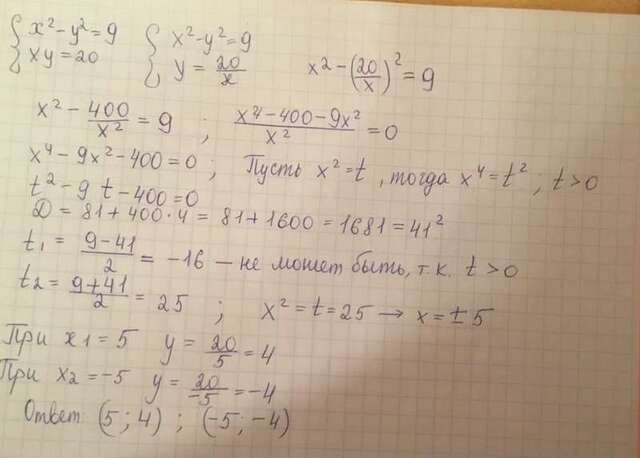 { x² - y² = 9   { x² - y² = 9
{ xy = 20   { y = 20/x   x² - (20/x)² = 9
x² - 400/x² = 9 ; (x⁴ - 400 - 9x²)/x² = 0
x⁴ - 9x² - 400 = 0 ; Пусть x² = t, тогда x⁴ = t² ; t > 0
t² - 9t - 400 = 0
D = 81 + 400 · 4 = 81 + 1600 = 1681 = 41²
t₁ = (9 - 41)/2 = -16 — не может быть, т.к. t > 0
t₂ = (9 + 41)/2 = 25 ; x² = t = 25 → x = ± 5
При x₁ = 5 y = 20/5 = 4
При x₂ = -5 y = 20/-5 = -4
Ответ (5 ; 4) ; (-5 ; -4)